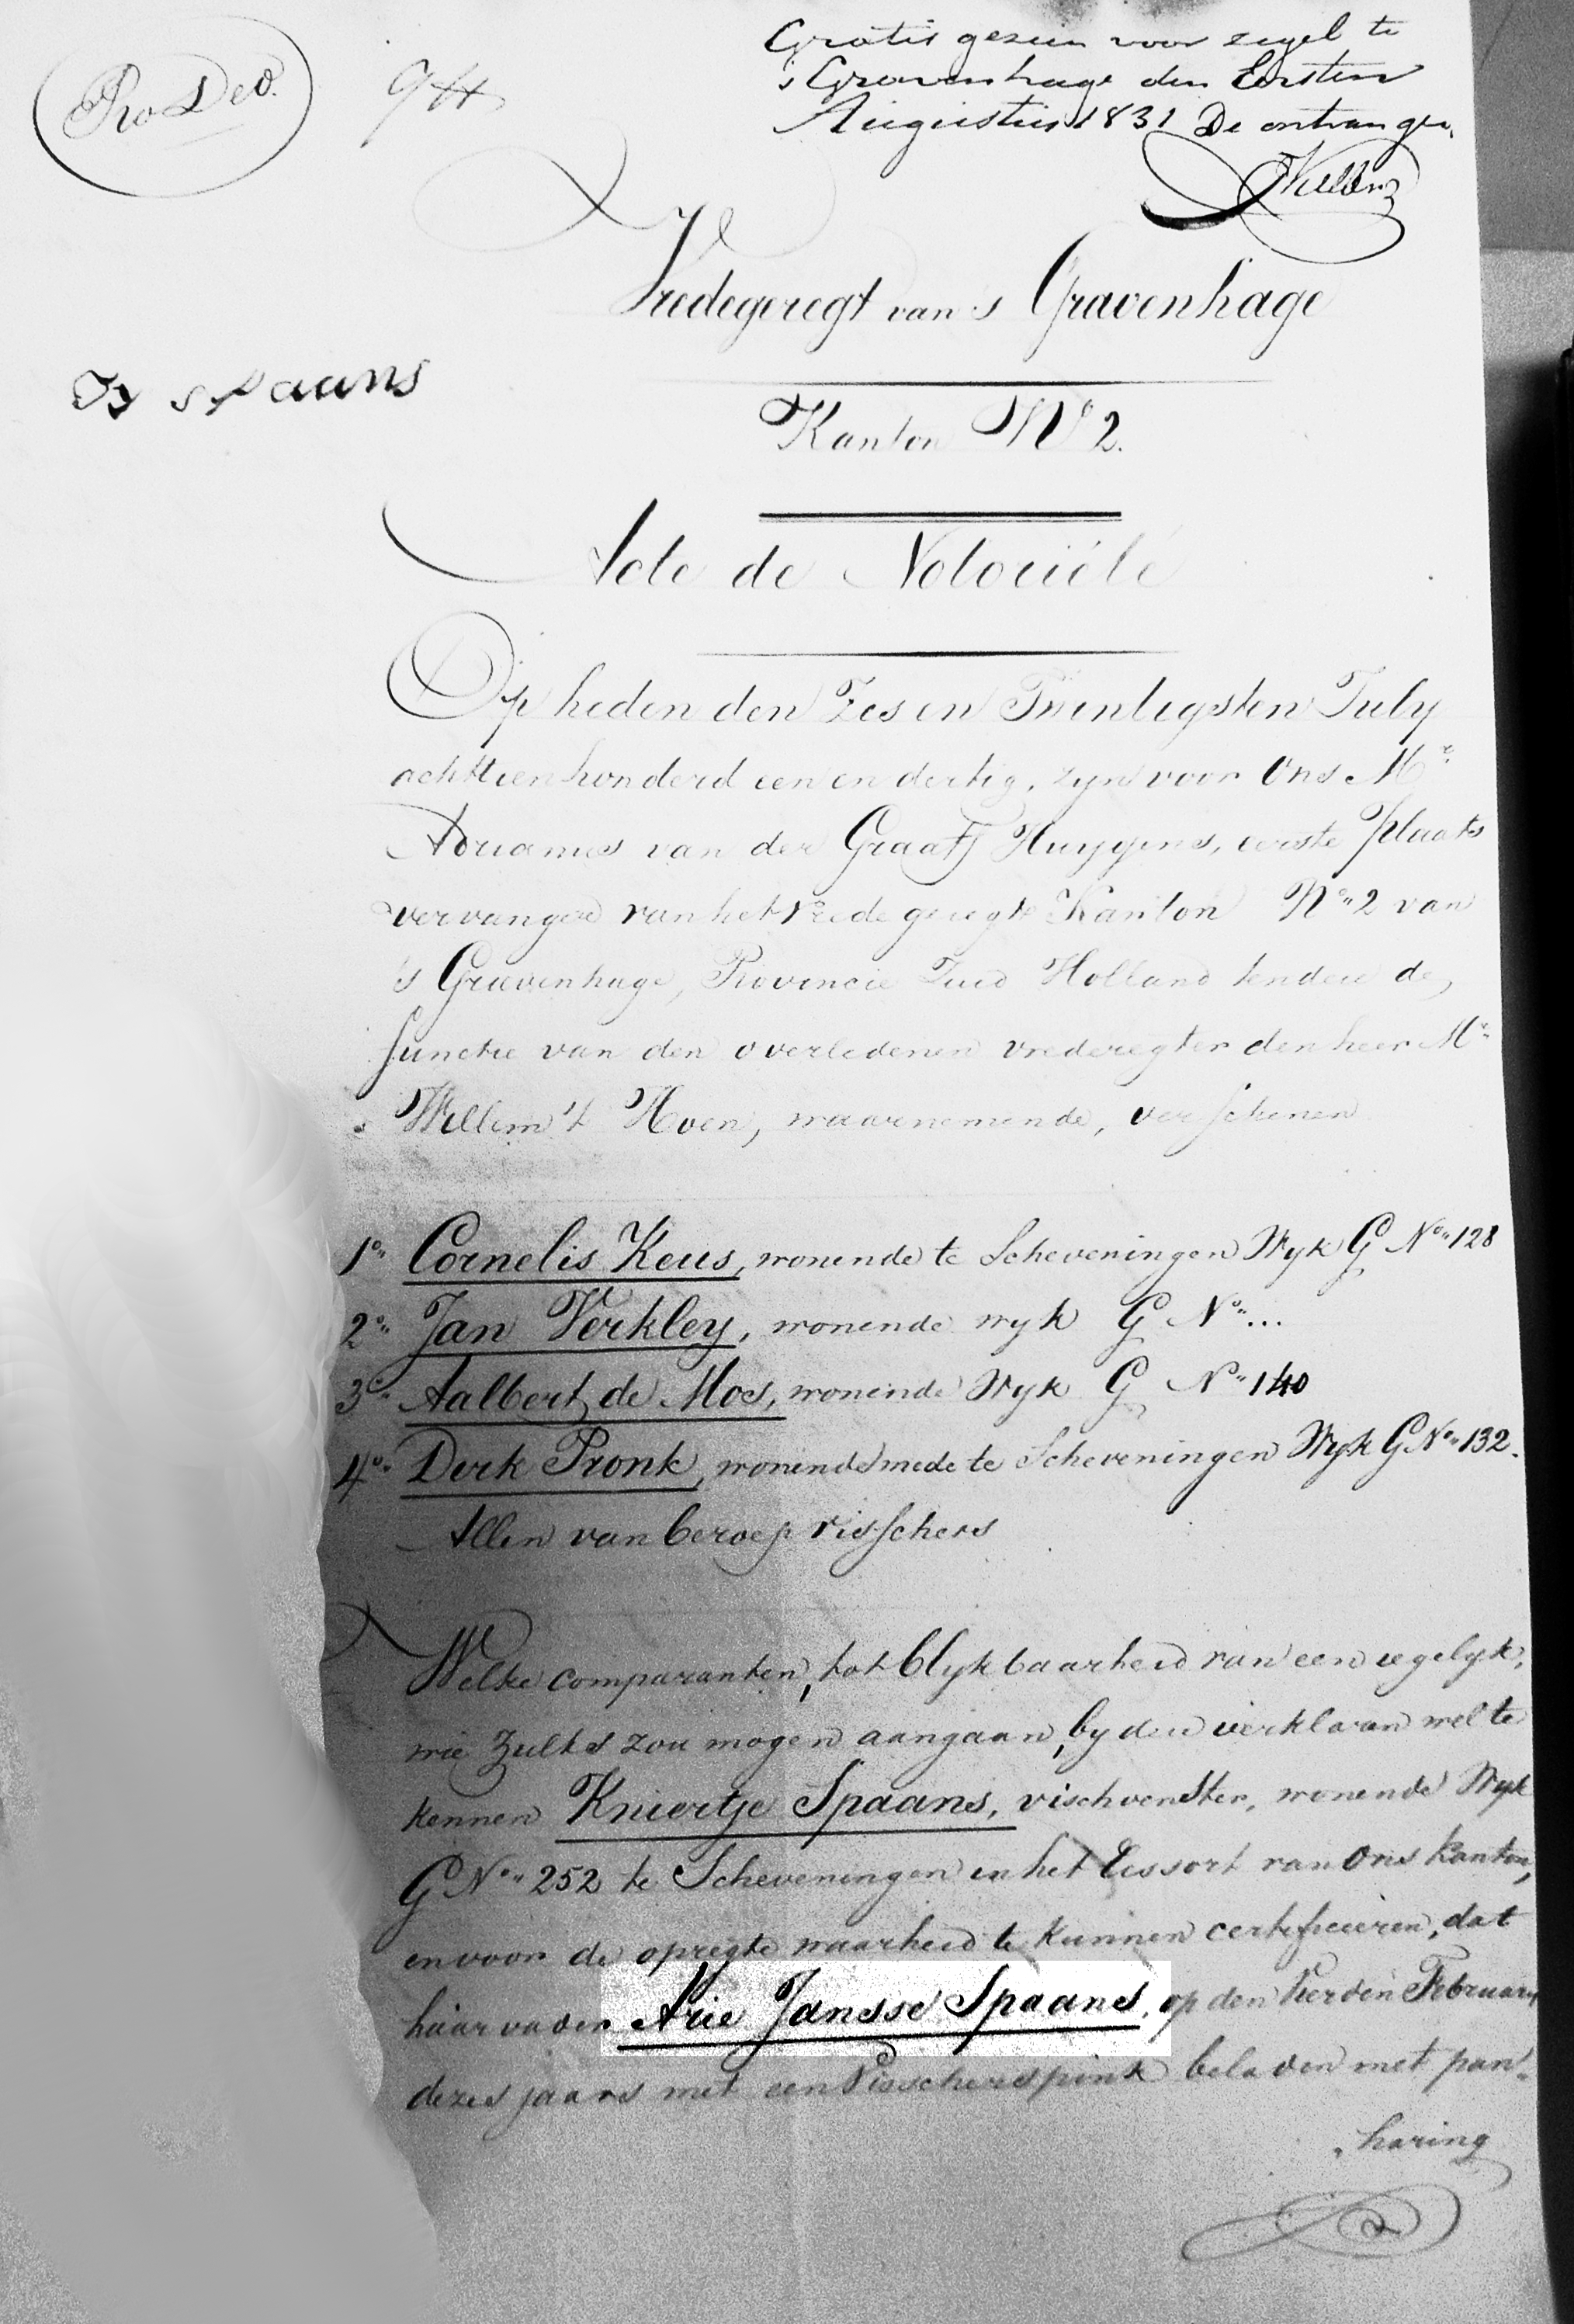 Pro Deo.
Gratis gezien voor zegel te
's Gravenhage den Eersten
Augustus 1831 De ontvanger,
Vredegeregt van 's Gravenhage
Kanton No 2.
A spaans
Acte de Notoriété
Op heden den Zes en Twintigsten July
achttienhonderd een en dertig, zyn voor Ons Mr.
Adrianus van der Graaff Huygens, eerste plaats
vervanger van het vredegeregt Kanton No. 2 van
's Gravenhage, Provincie Zuid Holland tendere de
functie van den overledenen vrederegter den heer Mr.
Willem 't Hoen, waarnemende, verschenen
1o. Cornelis Keus, wonende te Scheveningen Wyk G No. 128
2o. Jan Verkley, wonende wyk G No. ...
3o. Aalbert de Mos, wonende Wyk G No. 140
4o. Dirk Pronk, wonende mede te Scheveningen Wyk G No. 132.
Allen van beroep visschers
Welke comparanten, tot blykbaarheid van een iegelyk,
wie zulks zou mogen aangaan, by dezen verklaren wel te
kennen Kniertje Spaans, vischvendster, wonende Wyk
G No. 252 te Scheveningen in het Ressort van Ons Kanton,
en voor de opregte waarheid te kunnen certificeeren, dat
haar vader Arie Jansse Spaans, op den vierden February
dezes jaars met een Visscherspink beladen met pan-
haring